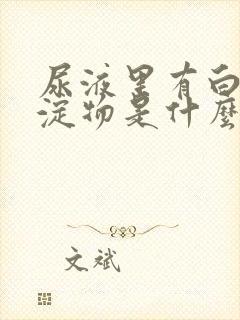 尿液里有白
淀物是什麼
文斌